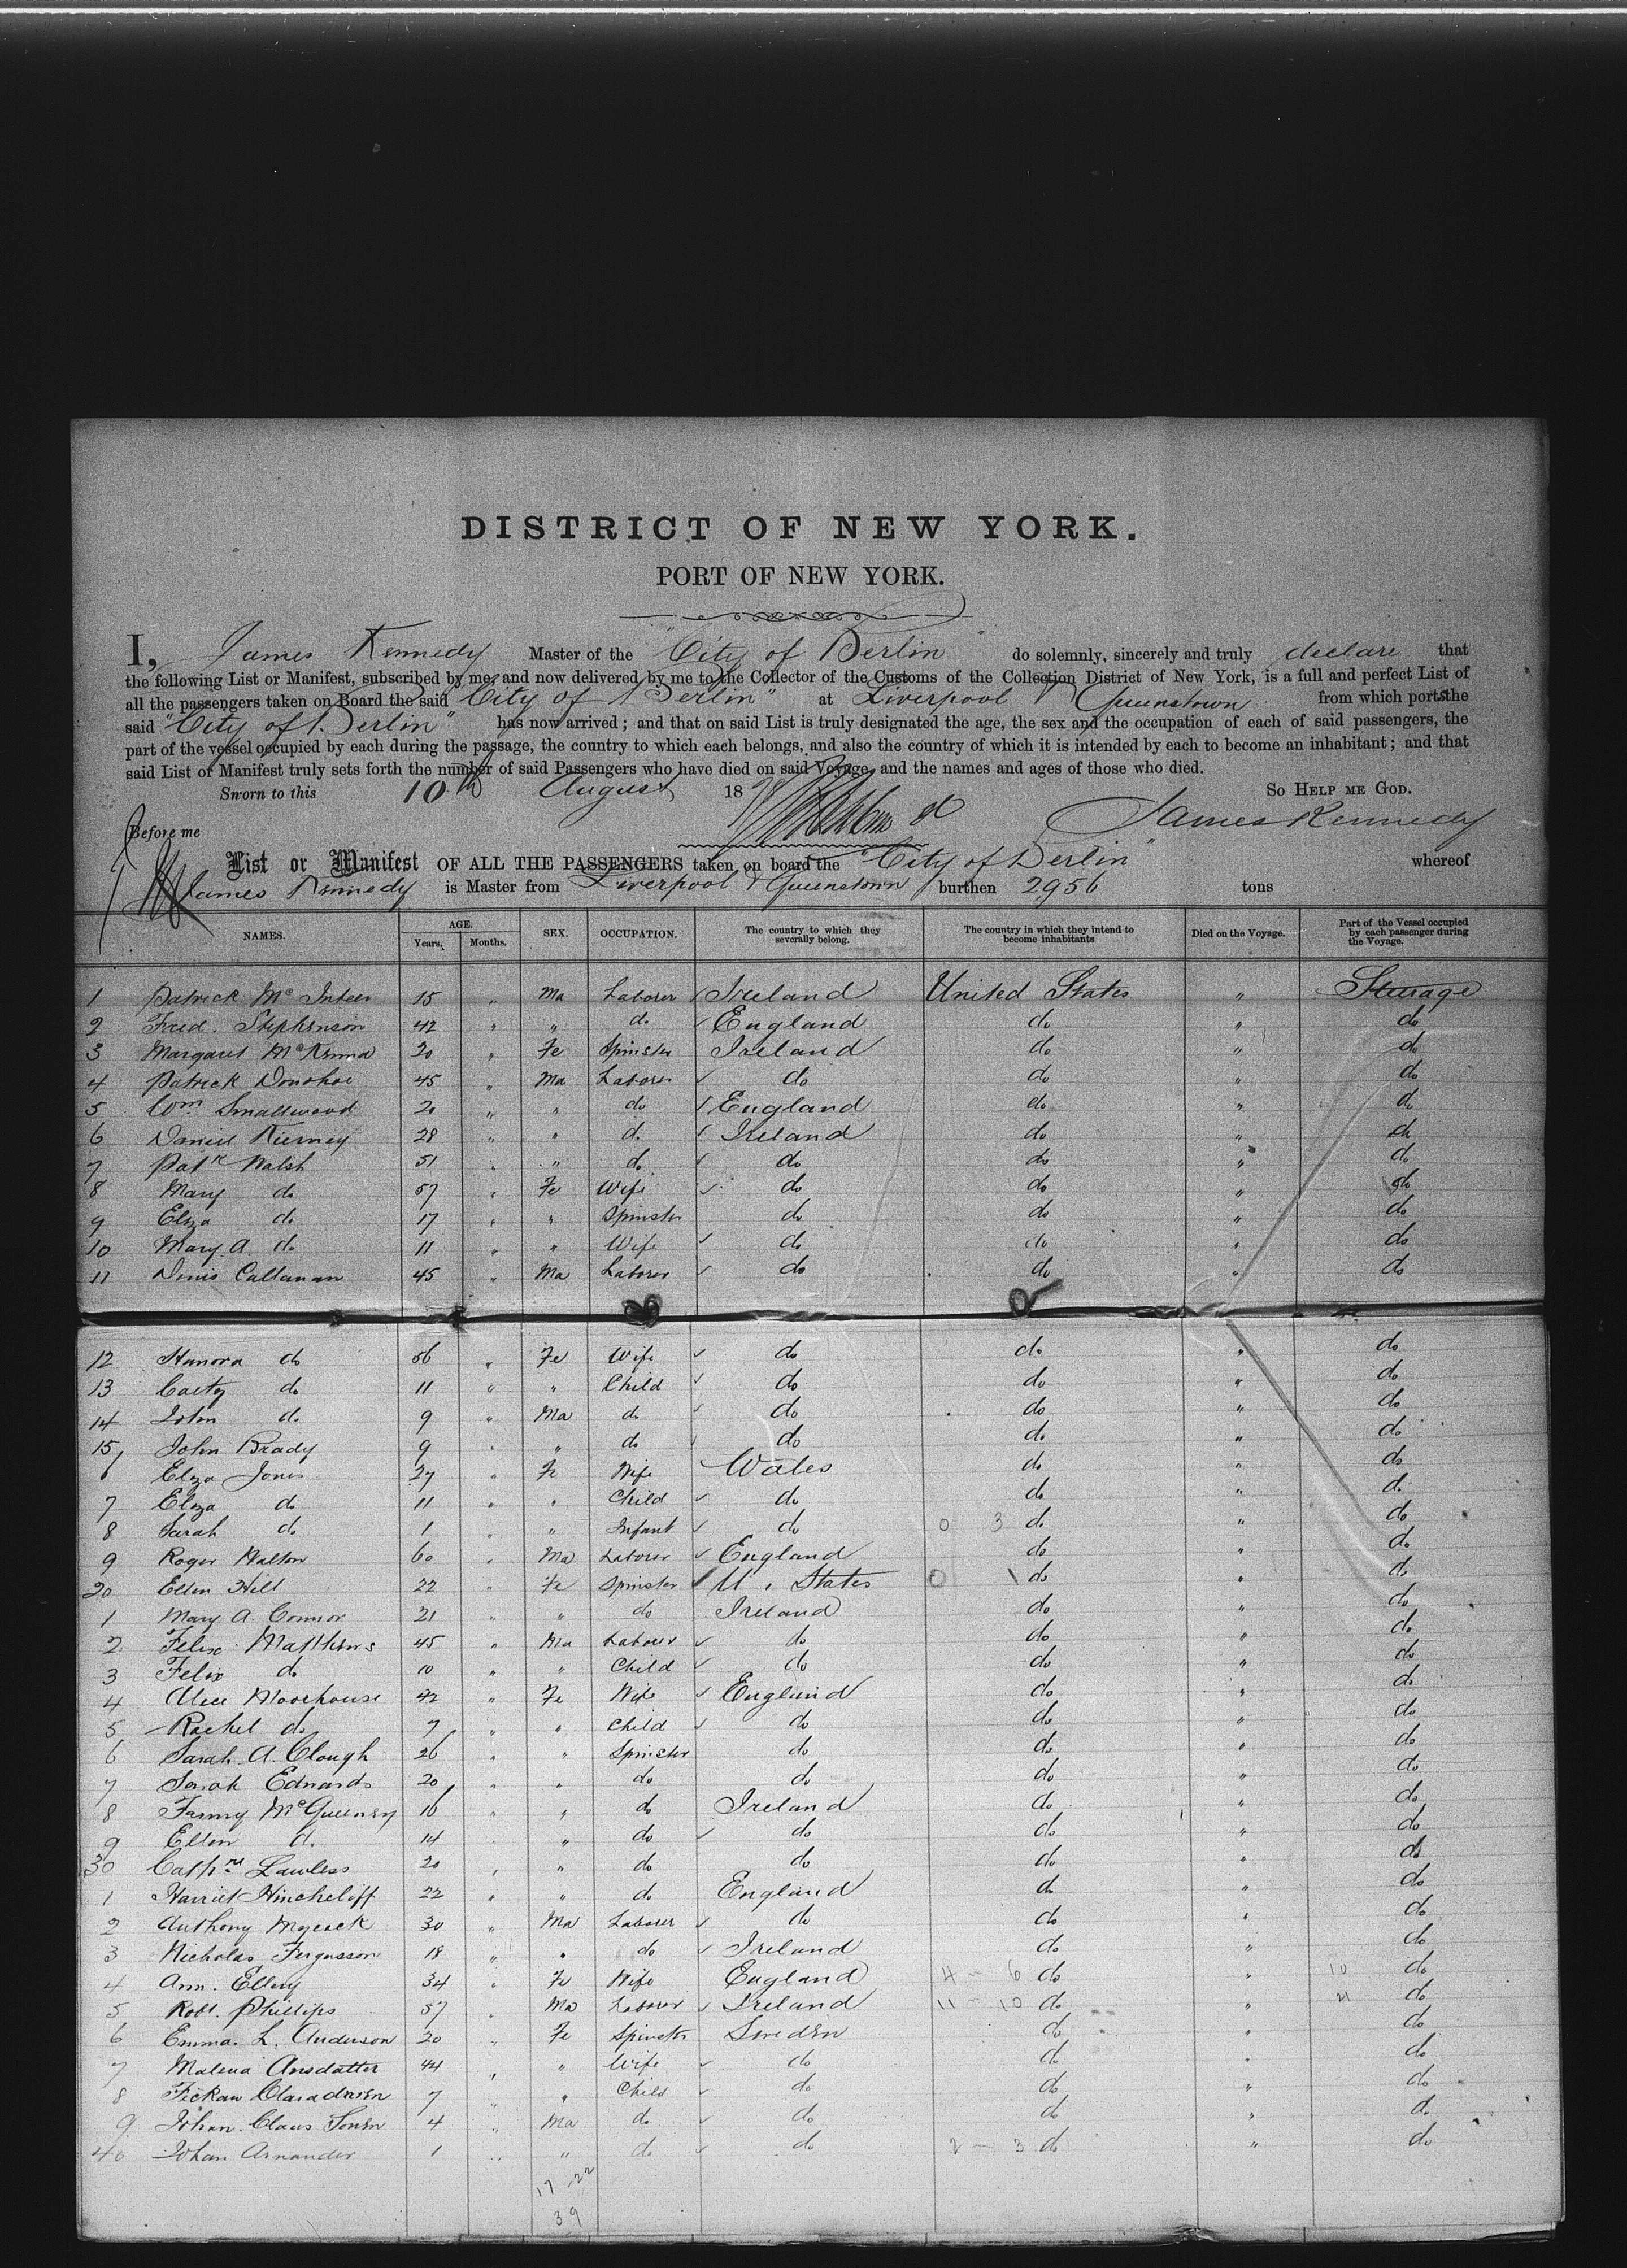 DISTRICT OF NEW YORK.
PORT OF NEW YORK.
I, James Kennedy Master of the "City of Berlin" do solemnly, sincerely and truly declare that
the following List or Manifest, subscribed by me, and now delivered by me to the Collector of the Customs of the Collection District of New York, is a full and perfect List of
all the passengers taken on Board the said "City of Berlin" at Liverpool & Queenstown from which ports the
said "City of Berlin" has now arrived; and that on said List is truly designated the age, the sex and the occupation of each of said passengers, the
part of the vessel occupied by each during the passage, the country to which each belongs, and also the country of which it is intended by each to become an inhabitant; and that
said List or Manifest truly sets forth the number of said Passengers who have died on said Voyage, and the names and ages of those who died.
Sworn to this 10th August 18 So HELP ME GOD.
Before me James Kennedy
List or Manifest OF ALL THE PASSENGERS taken on board the "City of Berlin" whereof
James Kennedy is Master from Liverpool & Queenstown burthen 2956 tons
NAMES. AGE. Years. Months. SEX. OCCUPATION. The country to which they severally belong. The country in which they intend to become inhabitants Died on the Voyage. Part of the Vessel occupied by each passenger during the Voyage.
1 Patrick Mc 15 " Ma Laborer Ireland United States " Steerage
2 Fred. Stephenson 42 " " do England do " do
3 Margaret McKenna 20 " Fe Spinster Ireland do " do
4 Patrick Donohoe 45 " Ma Laborer do do " do
5 Wm Smallwood 20 " " do England do " do
6 Daniel Kierney 28 " " do Ireland do " do
7 Patk Walsh 51 " " do do do " do
8 Mary do 57 " Fe Wife do do " do
9 Eliza do 17 " " Spinster do do " do
10 Mary A. do 11 " " Wife do do " do
11 Denis Callanan 45 " Ma Laborer do do " do
12 Hanora do 56 " Fe Wife do do " do
13 do 11 " " Child do do " do
14 John do 9 " Ma do do do " do
15 John Brady 9 " " do do do " do
6 Eliza Jones 27 " Fe Wife Wales do " do
7 Eliza do 11 " " Child do do " do
8 Sarah do 1 " " Infant do 0 3 do " do
9 Roger Walton 60 " Ma Laborer England do " do
20 Ellen Hill 22 " Fe Spinster U. States 0 1 do " do
1 Mary A. Connor 21 " " do Ireland do " do
2 Felix Matthews 45 " Ma Labourer do do " do
3 Felix do 10 " " Child do do " do
4 Alice Moorhouse 42 " Fe Wife England do " do
5 Rachel do 7 " " Child do do " do
6 Sarah A. Clough 26 " " Spinster do do " do
7 Sarah Edwards 20 " " do do do " do
8 Fanny 16 " " do Ireland do " do
9 Ellen do 14 " " do do do " do
30 Cathne Lawless 20 " " do do do " do
1 Harriet Hinchcliff 22 " " do England do " do
2 Anthony Mycock 30 " Ma Laborer do do " do
3 Nicholas Fergusson 18 " " do Ireland do " do
4 Ann. Ellery 34 " Fe Wife England 4 - 6 do " 10 do
5 Robt. Phillips 57 " Ma Laborer Ireland 11 - 10 do " 21 do
6 Emma. L. Anderson 20 " Fe Spinster Sweden do " do
7 Malena Ansdatter 44 " " Wife do do " do
8 7 " " Child do do " do
9 Johan. Claus 4 " Ma do do do " do
40 Johan 1 " " do do 2 - 3 do " do
17 - 22
39